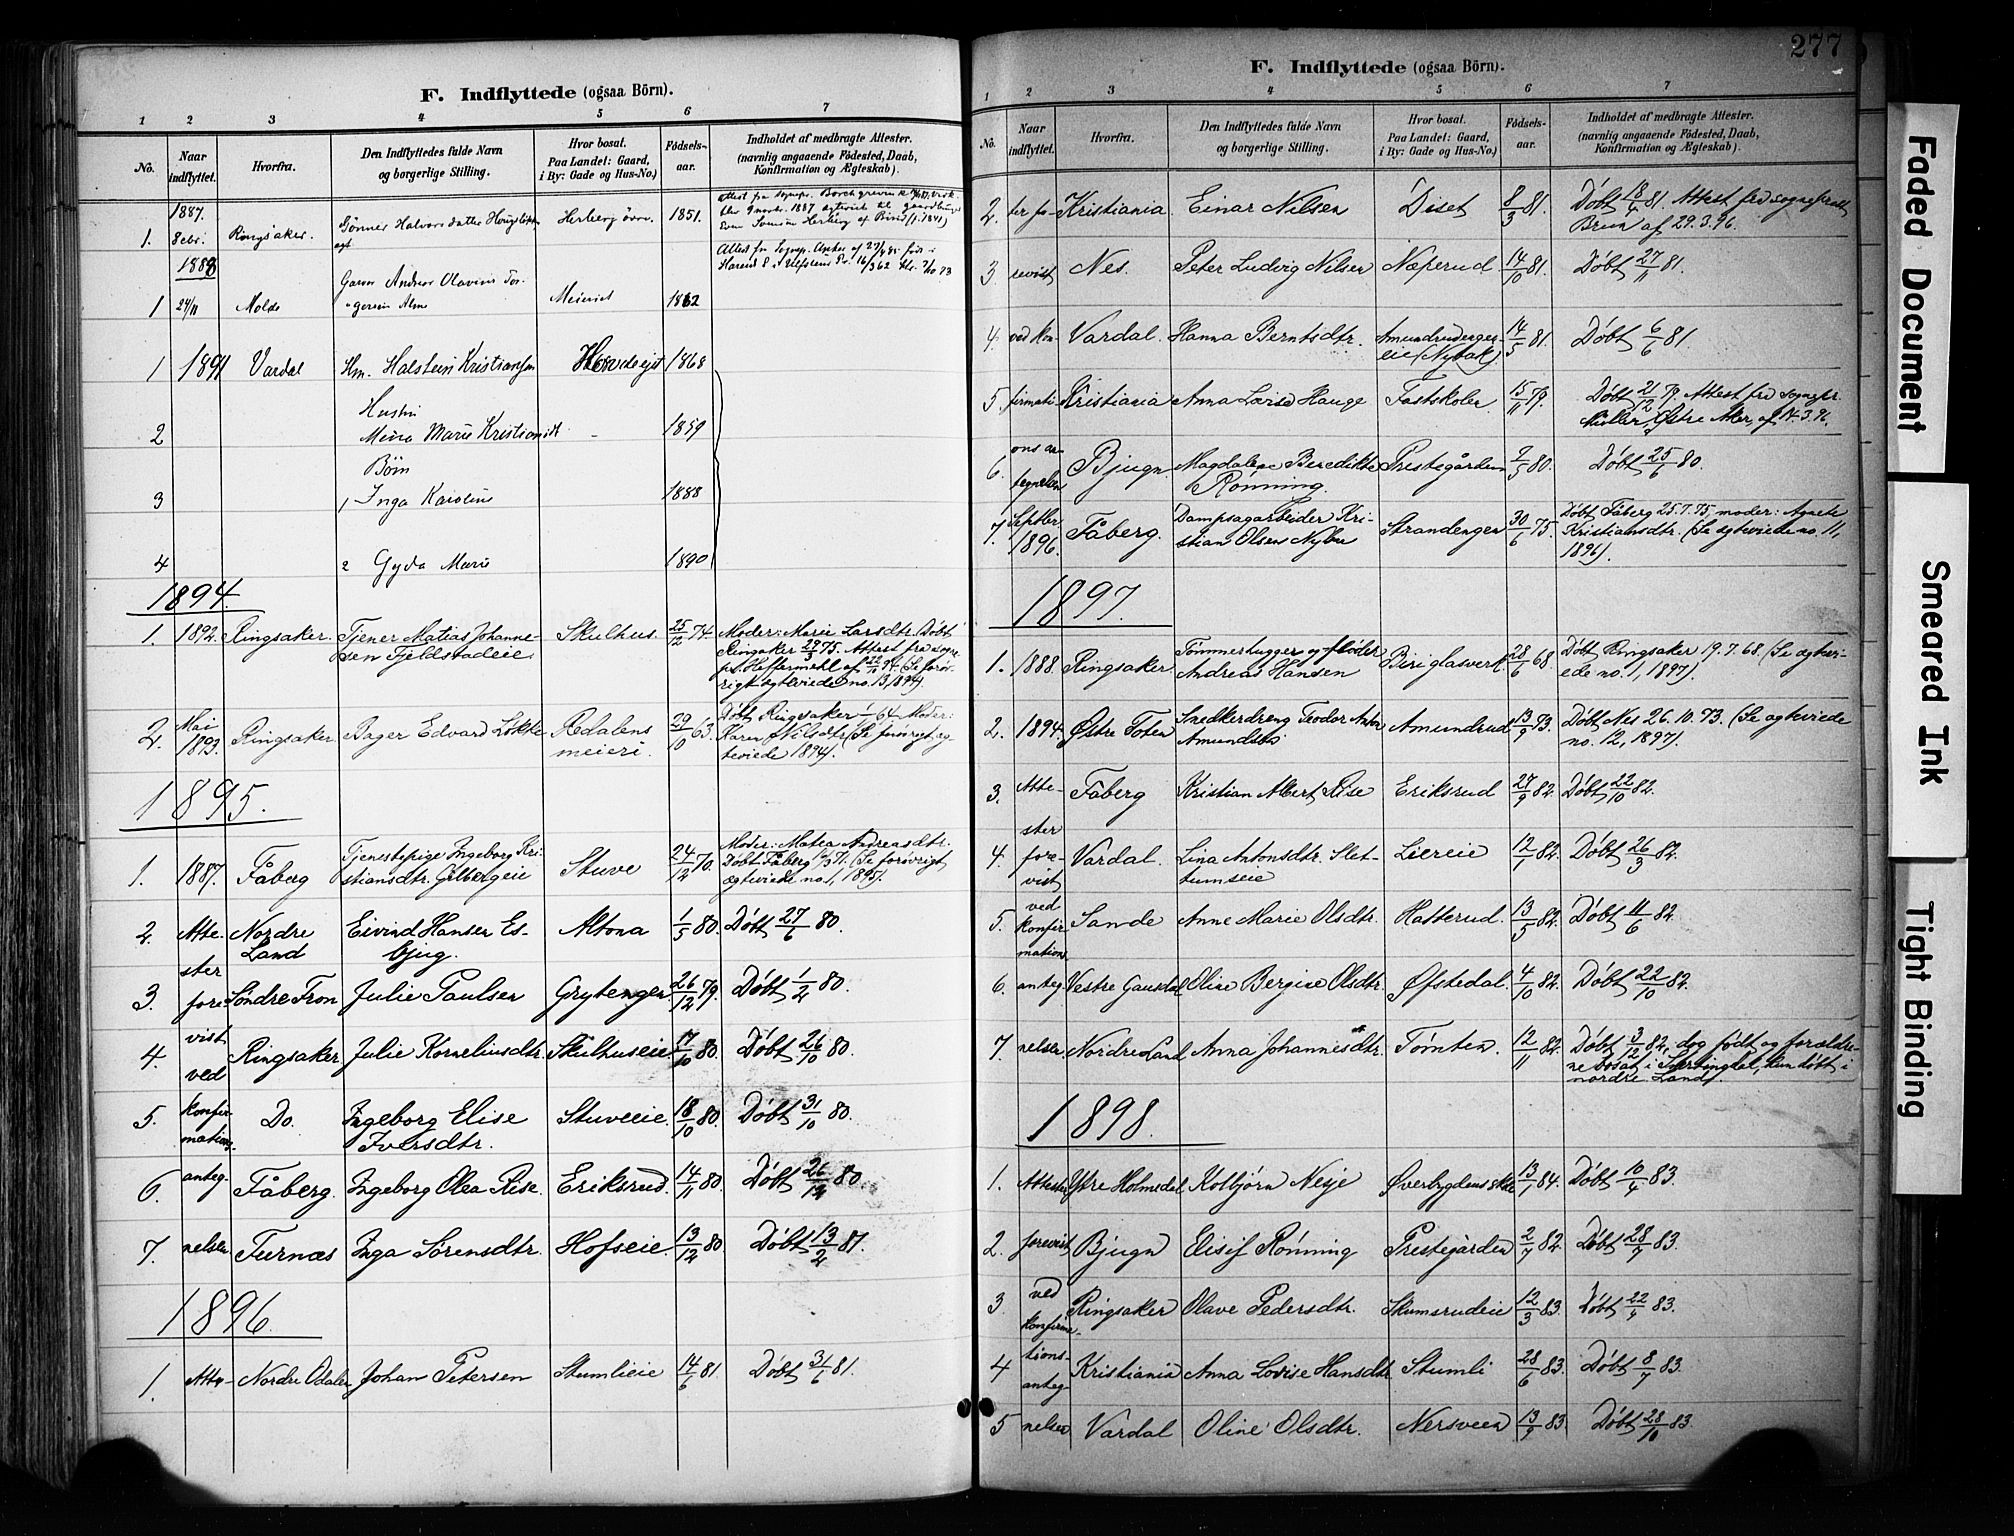 F. Indflyttede (ogsaa Börn).
1 2 3 4 5 6 7
No. Naar indflyttet. Hvorfra. Den Indflyttedes fulde Navn og borgerlige Stilling. Hvor bosat. Paa Landet: Gaard, i By: Gade og Hus-No.) Fødsels-aar. Indholdet af medbragte Attester. (navnlig angaaende Fødested, Daab, Konfirmation og Ægteskab).
1887.
1. 8ebr. Ringsaker. Gønner Halvorsdatter Herberg øvre. 1851.
1888
1 24/11 Molde Garver Andreas Olavius Tor- Meieriet 1862
1 1891 Vardal Hm. Halstein Kristiansen 1868
Hustru
2 Mina Marie Kristiansdt - 1859
Børn
3 1 Inga Karoline 1888
4 2 Gyda Marie 1890
1894.
1. 1892. Ringsaker. Tjener Matias Johanne- Skulhus. 25/12 74 Moder: Marie Larsdtr. Døbt
sen Fjeldstadeie Ringsaker 29/3 75. Attest fra sogne
pr. Heffermehl af 22/1 94 (Se forø-
rigt ægteviede no. 13, 1894).
2. Mai 1893. Ringsaker Bager Edvard Løkke Redalens meieri. 29/10 63. Døbt Ringsaker 1/1 64. Moder:
Karen Nilsdtr. (Se forøvrigt æg-
teviede 1894).
1895.
1. 1887. Fåberg Tjenestepige Ingeborg Kri- Stuve 24/12 70. Moder: Matea Andreasdtr.
stiansdtr. Gilbergeie Døbt Fåberg 71. (Se forøvrigt
ægteviede no. 1, 1895).
2. Atte- Nordre Land Eivind Hansen Es- Altona 1/5 80. Døbt 27/6 80.
bjug.
3. ster fore Søndre Fron Julie Paulsen Grytengen 26/12 79. Døbt 1/2 80.
4. vist ved Ringsaker Julie Korneliusdtr. Skulhuseie 17/10 80. Døbt 26/10 80.
5. konfir- mations- Do. Ingeborg Elise Iversdtr. Stuveeie 18/10 80. Døbt 31/10 80.
6. anteg- Fåberg. Ingeborg Olea Rise. Eriksrud. 14/11 80. Døbt 26/12 80.
7. nelsen Furnæs Inga Sørensdtr. Hofseie. 13/12 80. Døbt 13/2 81.
1896.
1. Atte- Nordre Odalen Johan Petersen Stumlieie 14/6 81. Døbt 31/6 81.
277
F. Indflyttede (ogsaa Börn).
1 2 3 4 5 6 7
No. Naar indflyttet. Hvorfra. Den Indflyttedes fulde Navn og borgerlige Stilling. Hvor bosat. Paa Landet: Gaard, i By: Gade og Hus-No.) Fødsels-aar. Indholdet af medbragte Attester. (navnlig angaaende Fødested, Daab, Konfirmation og Ægteskab).
2. ter fo- Kristiania. Einar Nilsen Diset 8/3 81. Døbt 18/4 81. Attest fra sognepræst
Brun af 29.3.96.
3 revist Nes. Peter Ludvig Nilsen Næperud 14/10 81. Døbt 27/11 81.
4. ved kon- Vardal. Hanna Berntsdtr. Amundrudenger- eie (Nybak) 14/5 81. Døbt 6/6 81.
5. firmati- Kristiania Anna Lovise Hauge Fastskolen 15/11 79. Døbt 21/12 79. Attest fra sognepr.
Møller, Østre Aker, af 14.3.96.
6. ons an- tegnelsen Bjugn Magdalene Benedikte Rønning. Prestegården 2/5 80. Døbt 25/6 80.
7. Septbr. 1896. Fåberg. Dampsagarbeider Kri- Strandengen 30/6 75. Døbt Fåberg 25.7.75, moder: Agnete
stian Olsen Nybu Kristiansdtr. (Se ægteviede no. 11,
1896).
1897.
1. 1888. Ringsaker Tømmerhugger og fløder Biri glasverk. 28/6 68. Døbt Ringsaker 19.7.68. (Se ægtevi-
Andreas Hansen ede no. 1, 1897).
2. 1894. Østre Toten Snedkerdreng Teodor Anton Amundrud 13/9 73. Døbt Nes 26.10.73. (Se ægteviede
Amundsen no. 12, 1897).
3. Atte- Fåberg Kristian Albert Rise Eriksrud 27/9 82. Døbt 22/10 82.
4. ster fore- vist Vardal. Lina Antonsdtr. Slet- Liereie 12/1 82. Døbt 26/3 82.
tumseie
5. ved konfir- mations Sande Anne Marie Olsdtr. Hatterud. 13/5 82. Døbt 11/6 82.
6. anteg- Vestre Gausdal Oline Bergine Olsdtr. Øfstedal. 4/10 82. Døbt 22/10 82.
7. nelsen Nordre Land Anna Johannesdtr. Tømten. 12/11 82. Døbt 3/12 82, dog født og forældre-
ne bosat i Snertingdal, kun døbt i
nordre Land.
1898.
1. Attester Ytre Holmedal Kolbjørn Nesje Øverbygdens skole 13/1 84. Døbt 10/4 83.
2. forevist Bjugn Elisif Rønning Prestegården 2/7 82. Døbt 28/7 83.
3. ved konfirma- Ringsaker Olave Pedersdtr. Skumsrudeie 12/3 83. Døbt 22/4 83.
4 tions- anteg- Kristiania Anna Lovise Hansdtr. Stumli 28/6 83. Døbt 8/7 83.
5 nelsen Vardal Oline Olsdtr. Nersveen 13/9 83. Døbt 28/10 83.
Faded Document
Smeared Ink
Tight Binding